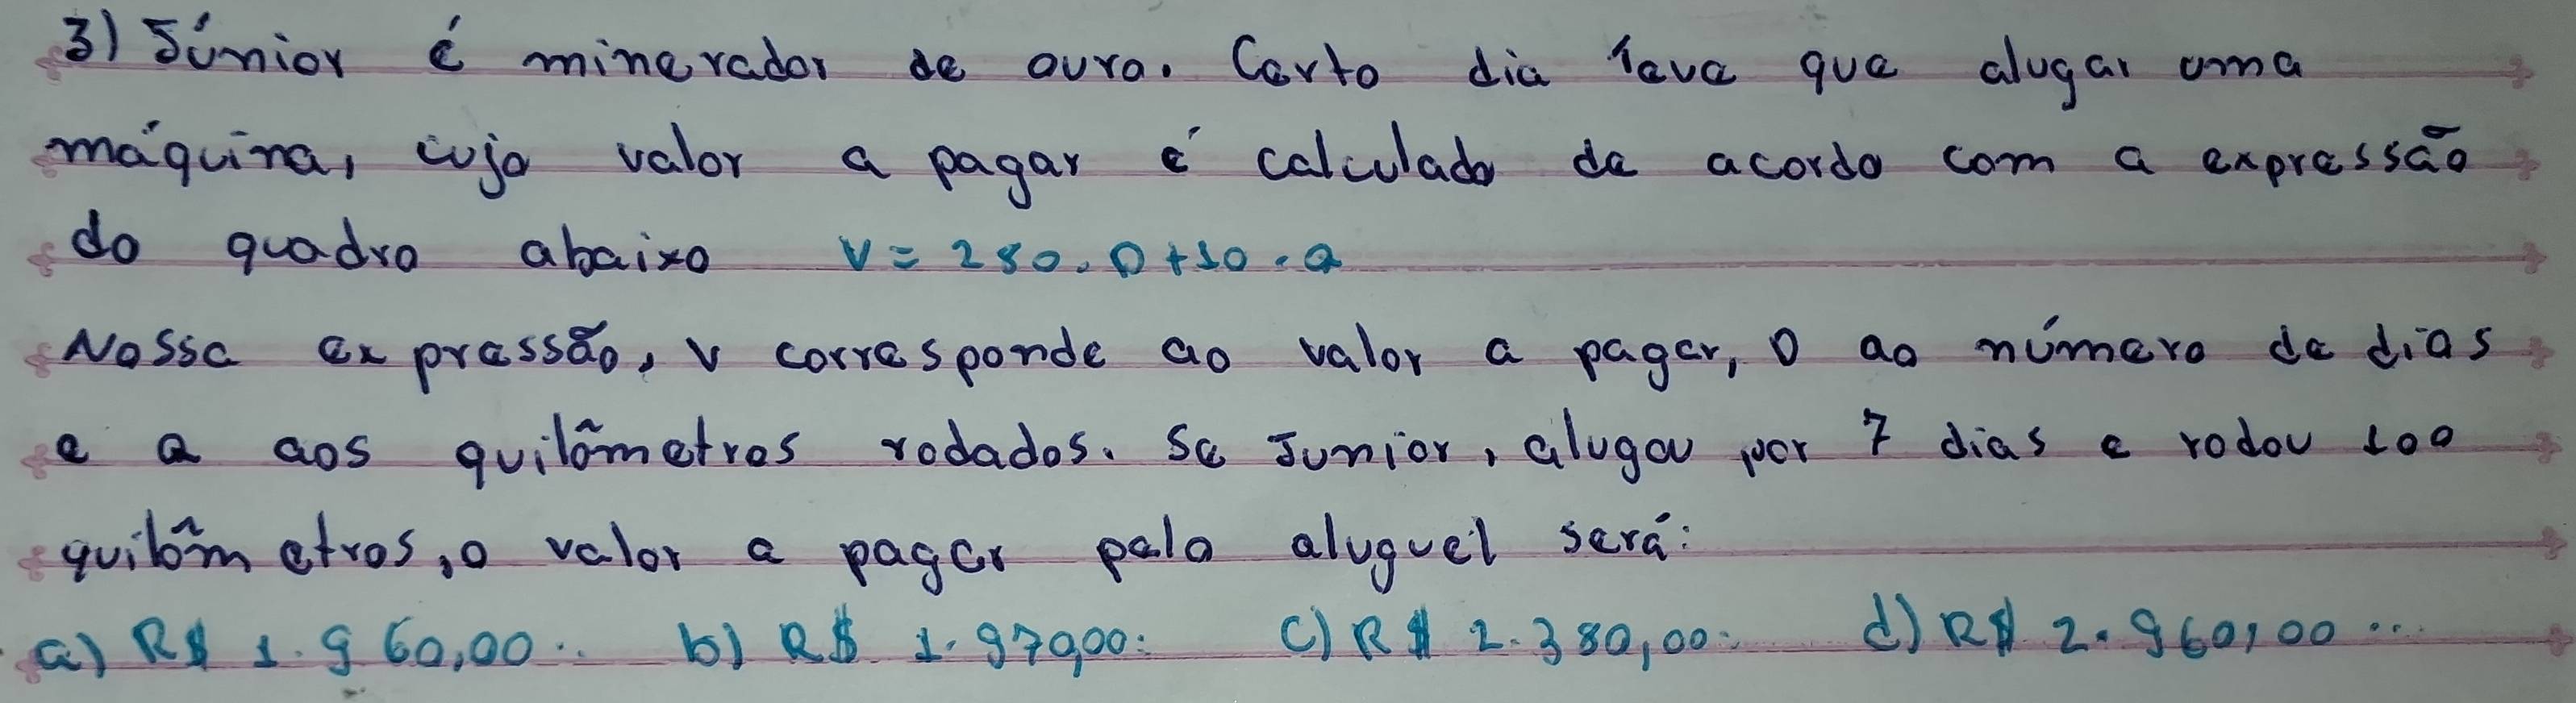 3) Júnior é minerador de ouro. Certo dia teve que alugar uma
máquina, cujo valor a pagar é calculado de acordo com a expressão
do quadro abaixo V = 280.D+10.Q
Nossa expressão, V corresponde ao valor a pagar, D ao número de dias
e Q aos quilômetros rodados. Se Junior, alugou por 7 dias e rodou 100
quilômetros, o valor a pagar pelo aluguel será:
a) R$ 1.960,00.. b) R$ 1.970,00: c) R$ 2.380,00: d) R$ 2.960,00...